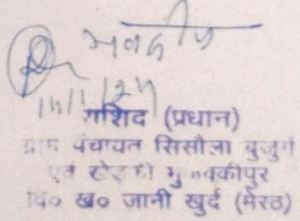 भवदीय
राशिद (प्रधान)
ग्राम पंचायत सिसौला बुजुर्ग
एवं खेड़की मुजक्कीपुर
वि० ख० जानी खुर्द (मेरठ)